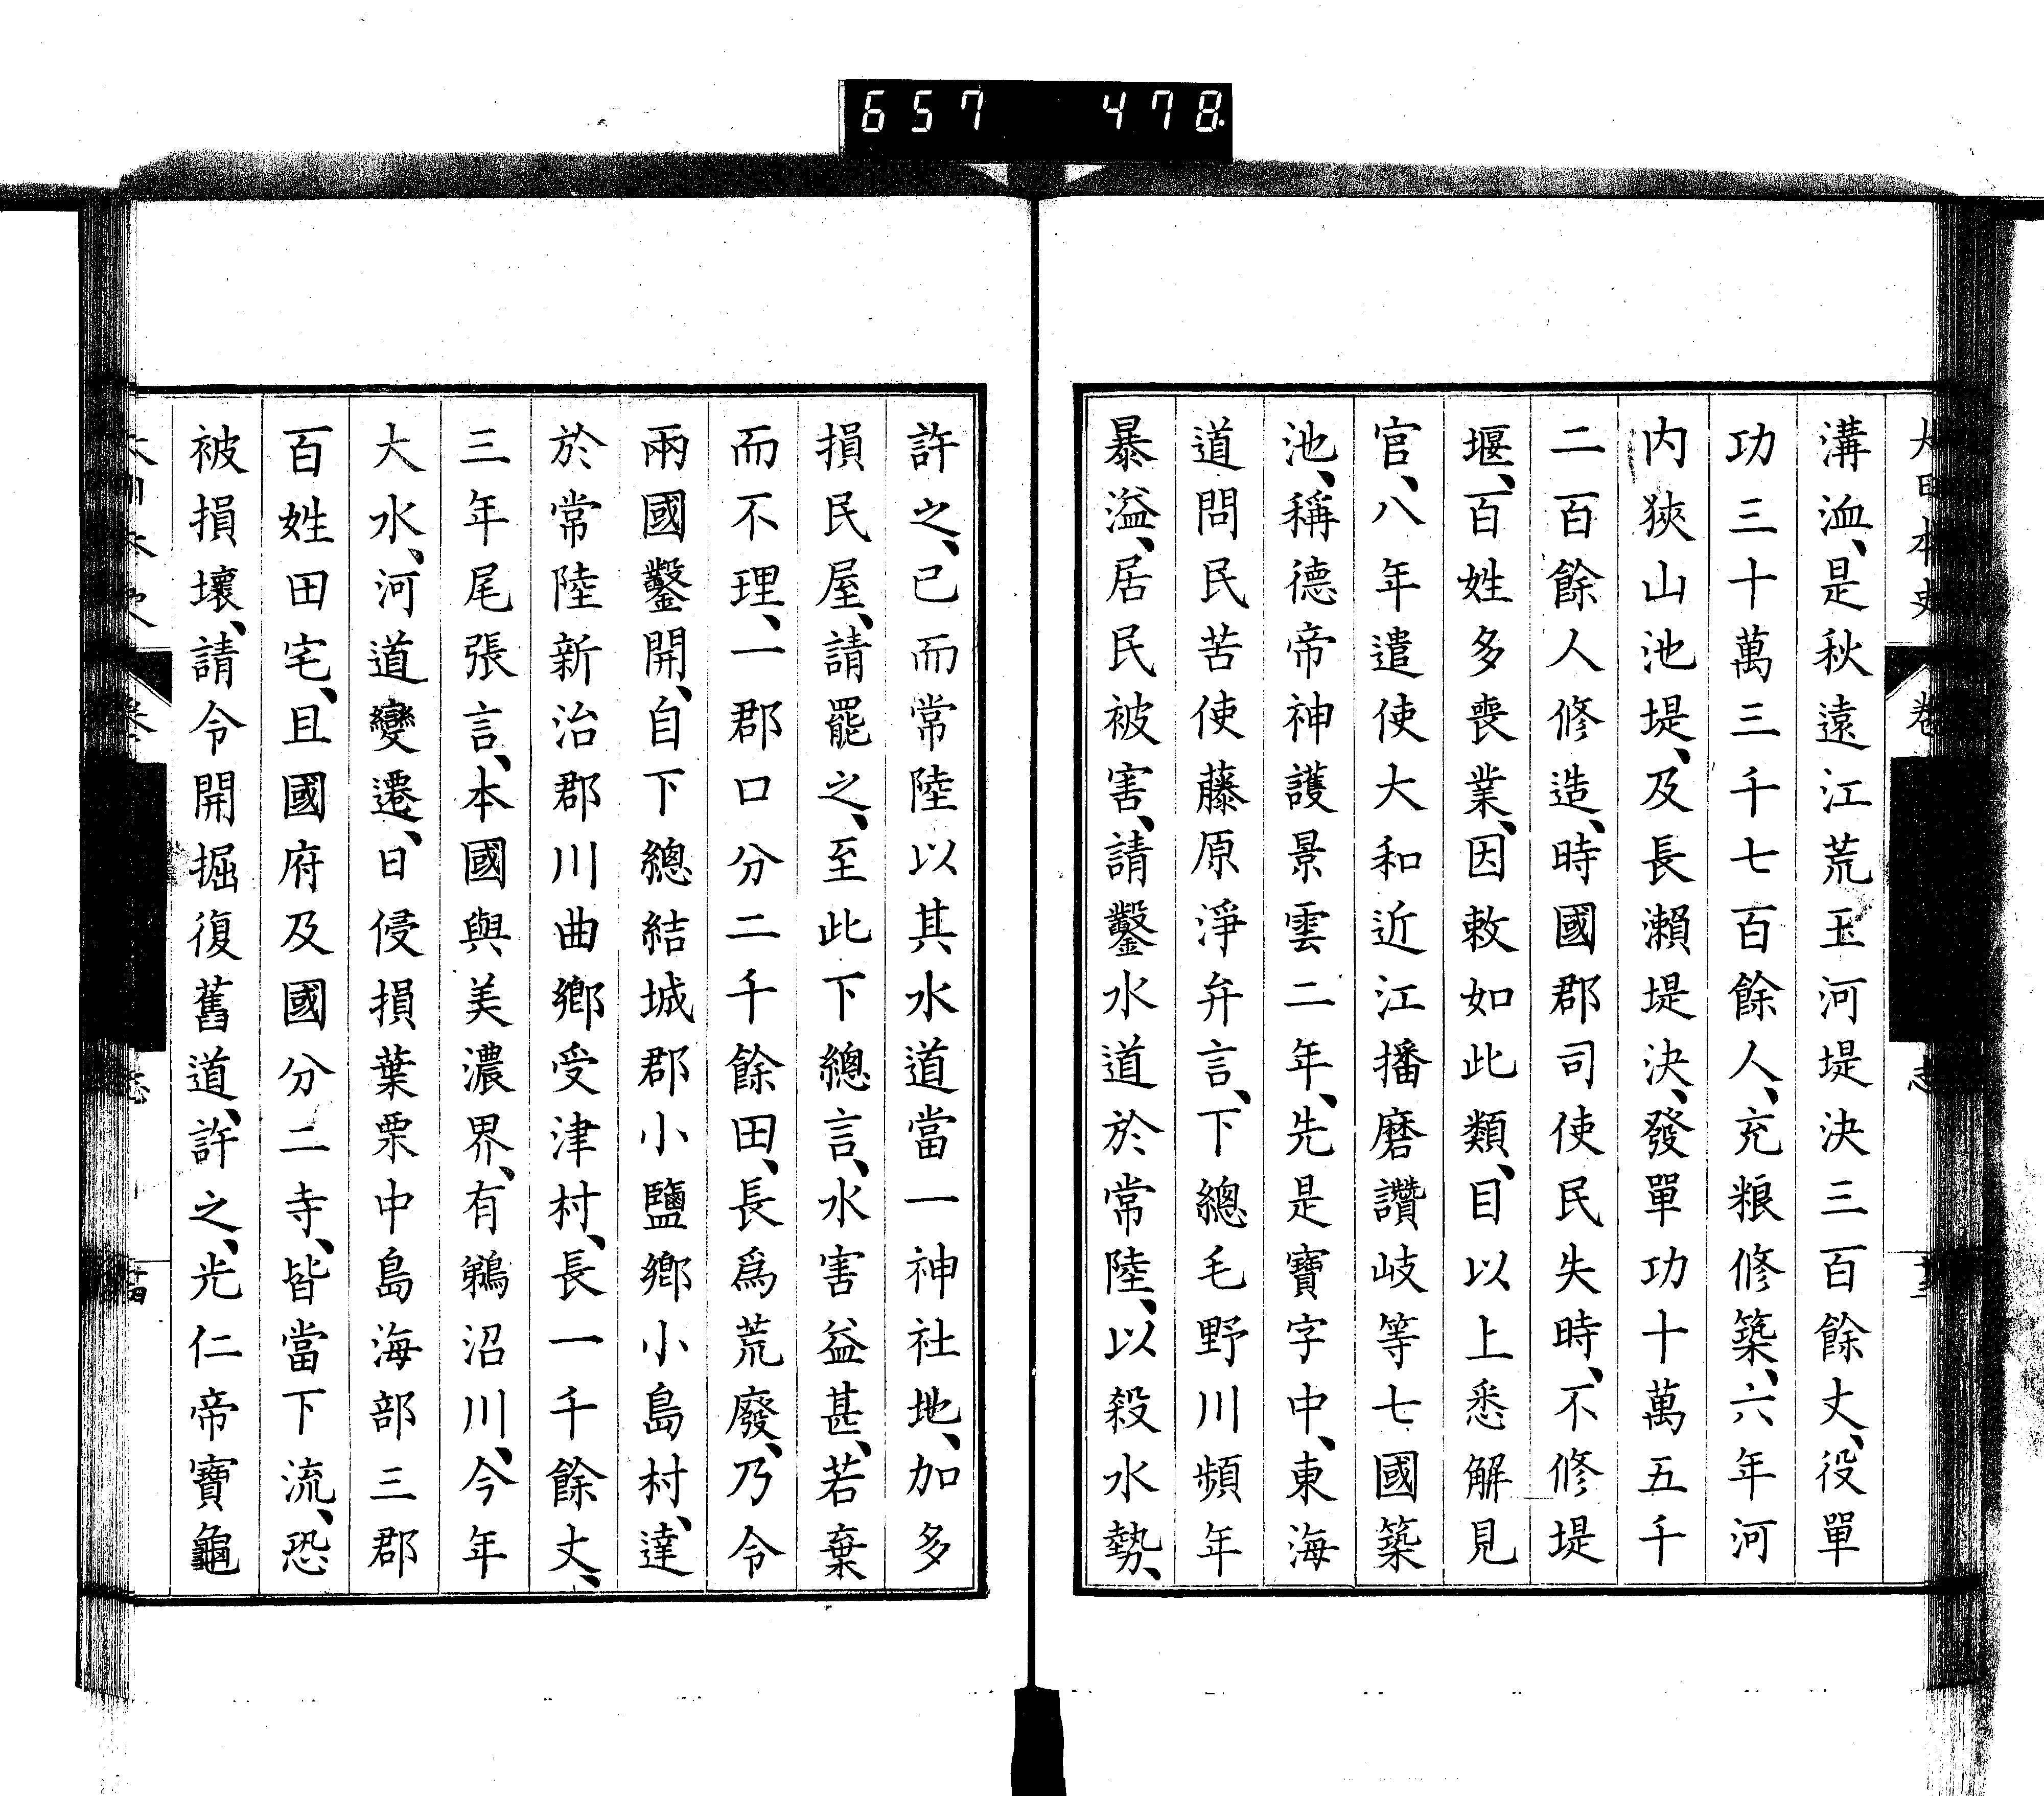 657 478
大日本史
溝洫、是秋遠江荒玉河堤決三百餘丈、役單
功三十萬三千七百餘人、充粮修築、六年河
内狹山池堤、及長瀨堤決、發單功十萬五千
二百餘人修造、時國郡司使民失時、不修堤
堰、百姓多喪業、因敕如此類、目以上悉解見
官、八年遣使大和近江播磨讚岐等七國築
池、稱德帝神護景雲二年、先是寶字中、東海
道問民苦使藤原淨弁言、下總毛野川頻年
暴溢、居民被害、請鑿水道於常陸、以殺水勢、
許之、已而常陸以其水道當一神社地、加多
損民屋、請罷之、至此下總言、水害益甚、若棄
而不理、一郡口分二千餘田、長爲荒廢、乃令
兩國鑿開、自下總結城郡小鹽鄉小島村、達
於常陸新治郡川曲鄉受津村、長一千餘丈、
三年尾張言、本國與美濃界、有鵜沼川、今年
大水、河道變遷、日侵損葉栗中島海部三郡
百姓田宅、且國府及國分二寺、皆當下流、恐
被損壞、請令開掘復舊道、許之、光仁帝寶龜